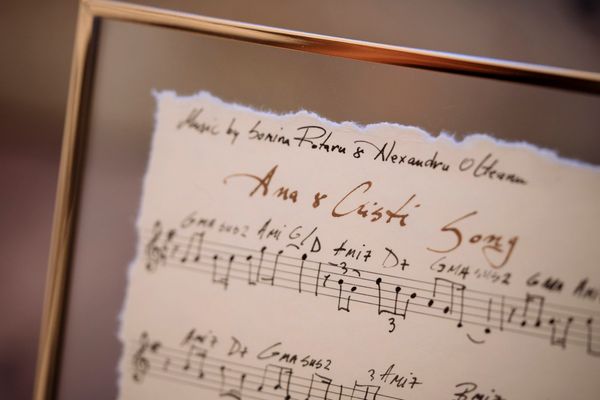 Music by Sorina Potaru & Alexandru Olteanu
Ana & Cristi Song
Gmasus2 Ami G/D Ami7 D7 Gmasus2 Gma Ami
3
3
Ami7 D7 Gmasus2 3 Ami7 Bmi7